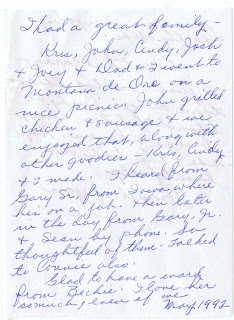 I had a great family -
Kris, John, Cindy, Josh
& Joey & Dad & I went to
Montana de Oro on a
nice picnic. John grilled
chicken & sausage & we
enjoyed that, along with
other goodies - Kris, Cindy
& I made. I heard from
Gary Sr, from Iowa, where
he's on a job. Then later
in the day from Gary, Jr.
& Sean by phone. So
thoughtful of them. Talked
to Connie also.
Glad to have a card
from Bechie. I love her
so much, even if we
May, 1992